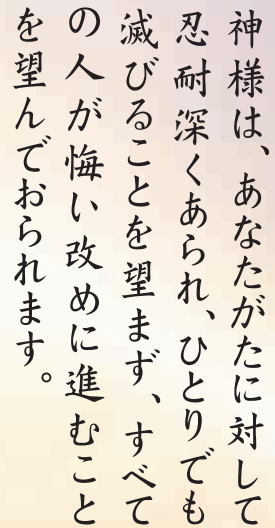 神様は、あなたがたに対して
忍耐深くあられ、ひとりでも
滅びることを望まず、すべて
の人が悔い改めに進むこと
を望んでおられます。